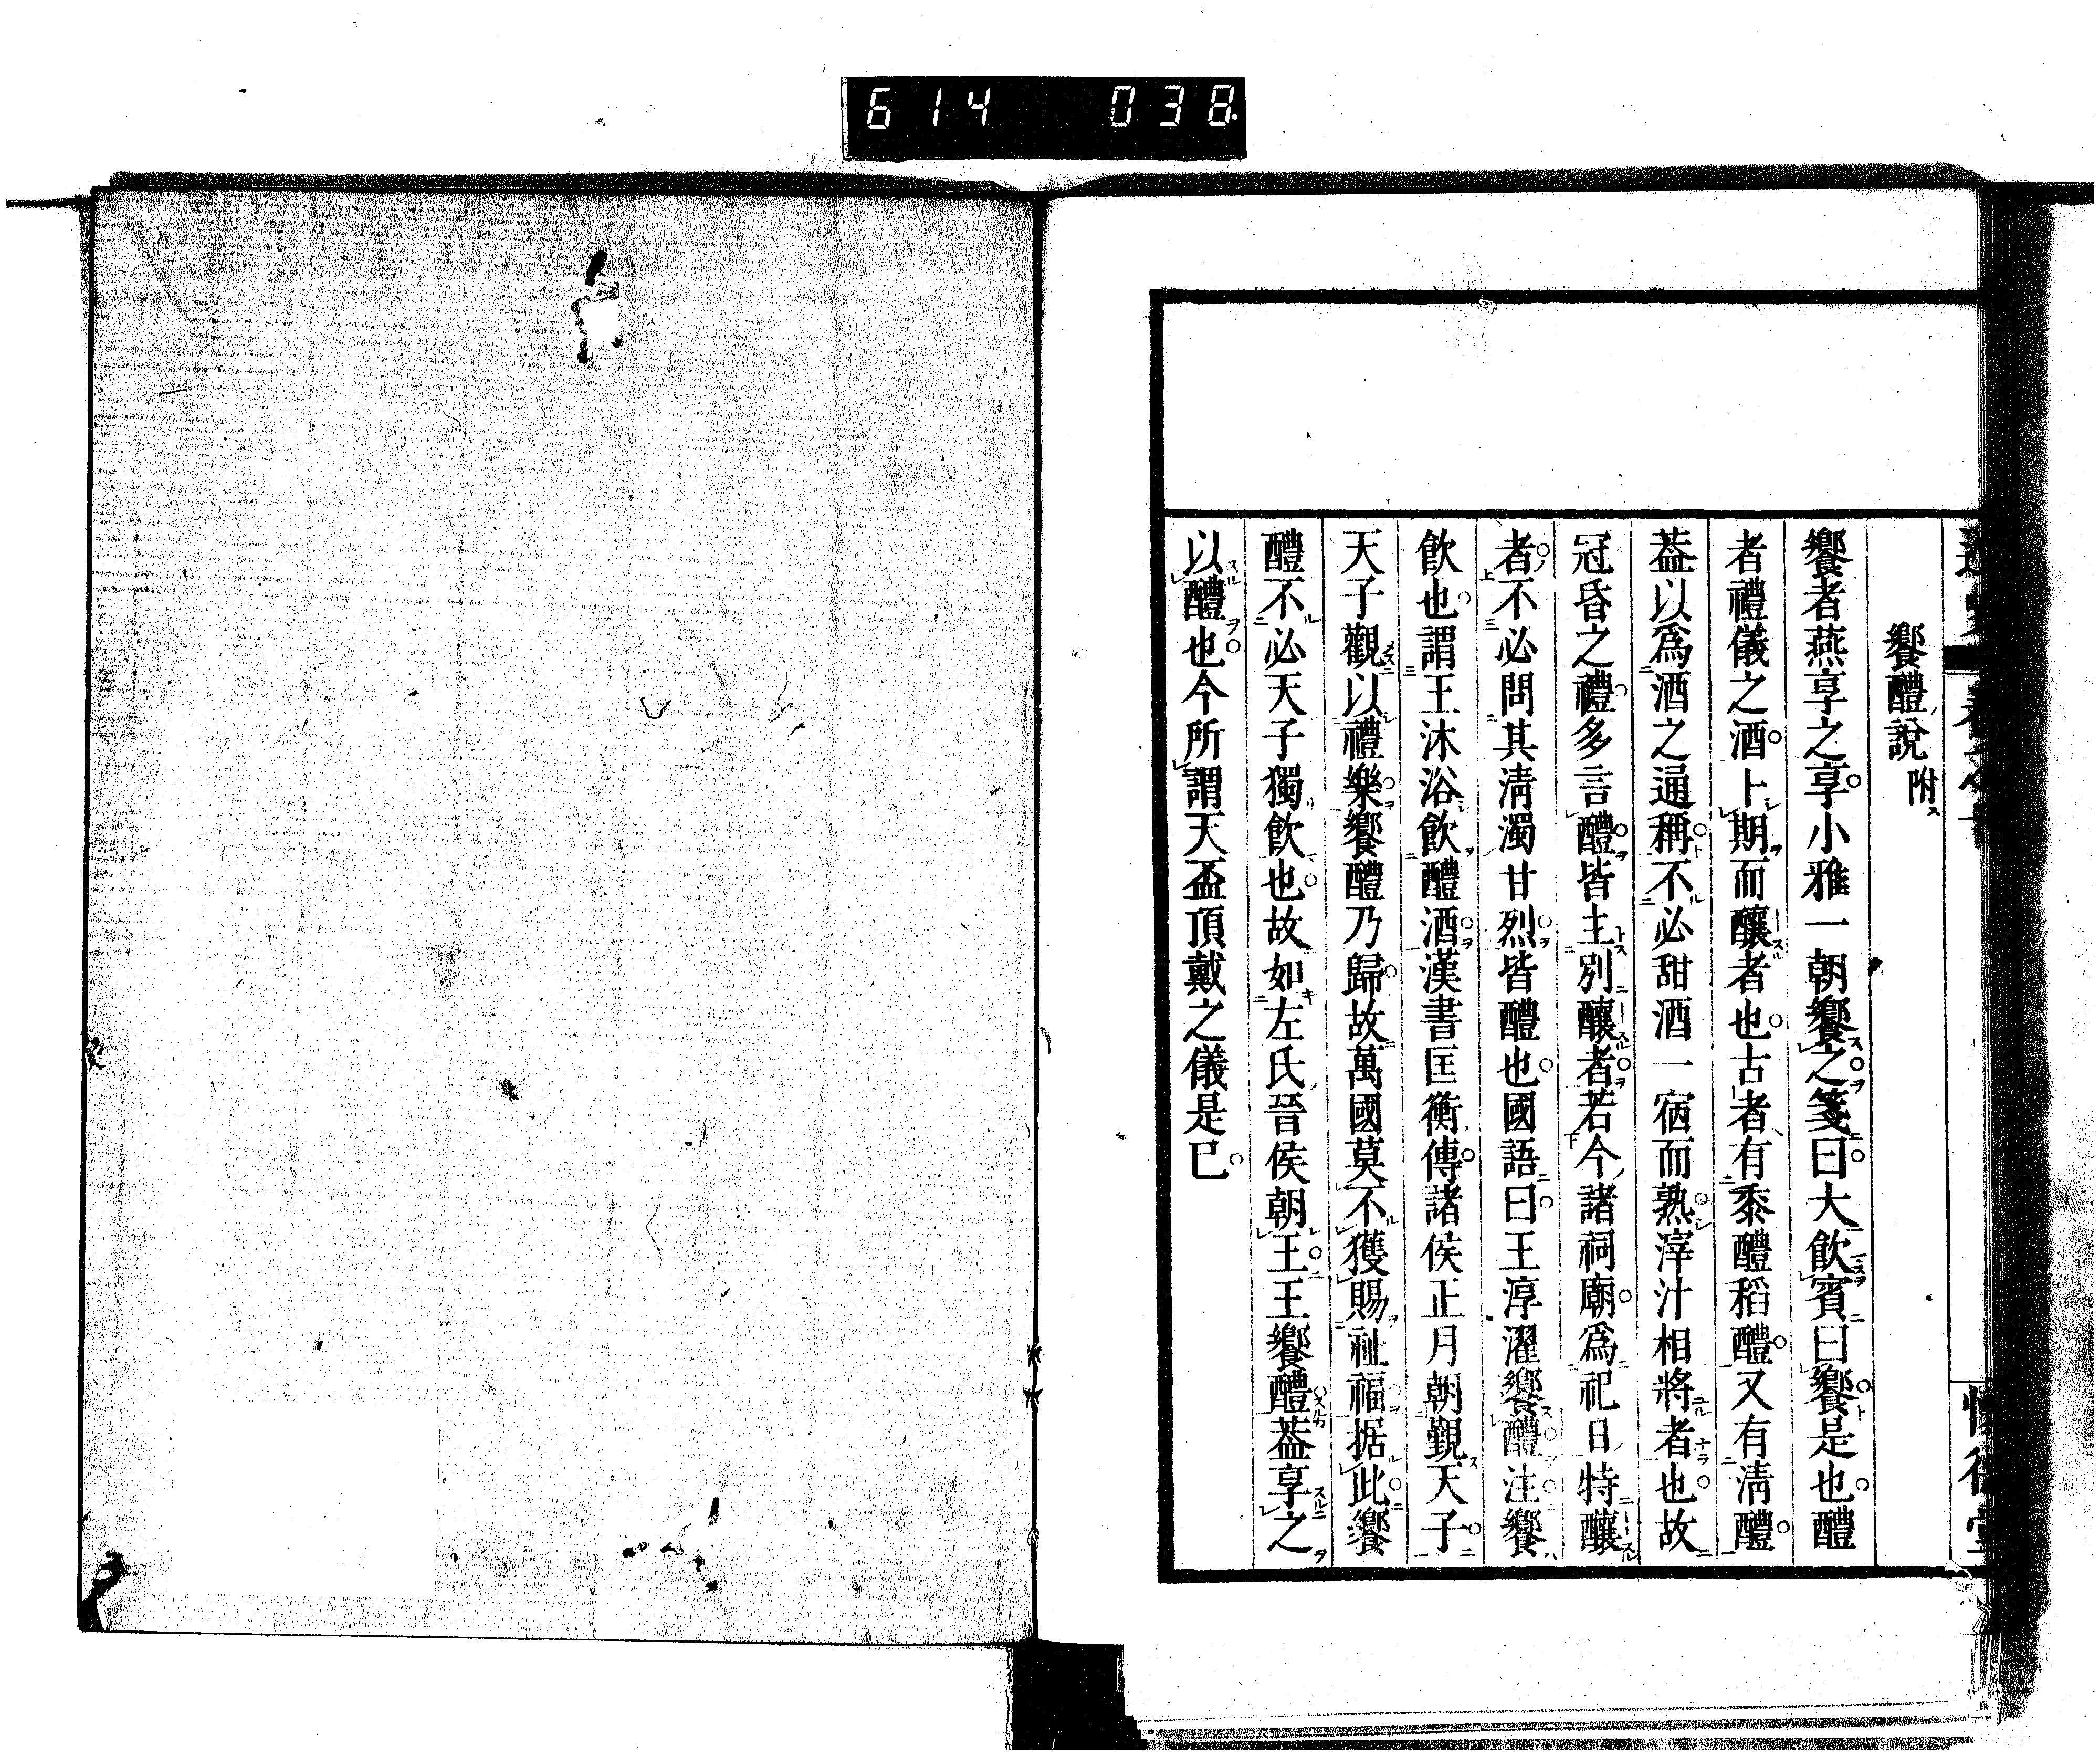 614 038
饗醴說附
饗者燕享之享小雅一朝饗之箋曰大飲賓曰饗是也醴
者禮儀之酒卜期而釀者也古者有黍醴稻醴又有淸醴
葢以爲酒之通稱不必甜酒一宿而熟滓汁相將者也故
冠昏之禮多言醴皆主別釀者若今諸祠廟爲祀日特釀
者不必問其淸濁甘烈皆醴也國語曰王淳濯饗醴注饗
飮也謂王沐浴飮醴酒漢書匡衡傳諸侯正月朝覲天子
天子觀以禮樂饗醴乃歸故萬國莫不獲賜祉福据此饗
醴不必天子獨飮也故如左氏晉侯朝王王饗醴葢享之
以醴也今所謂天盃頂戴之儀是已